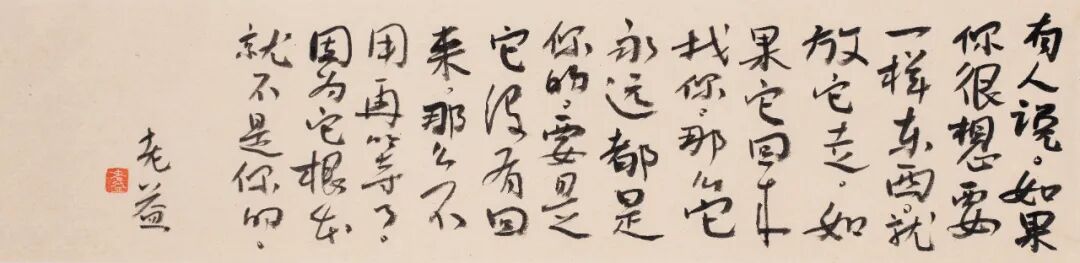 有人说。如果
你很想要
一样东西。就
放它走。如
果它回来
找你。那么它
永远都是
你的。要是
它没有回
来。那么不
用再等了。
因为它根本
就不是你的。
益